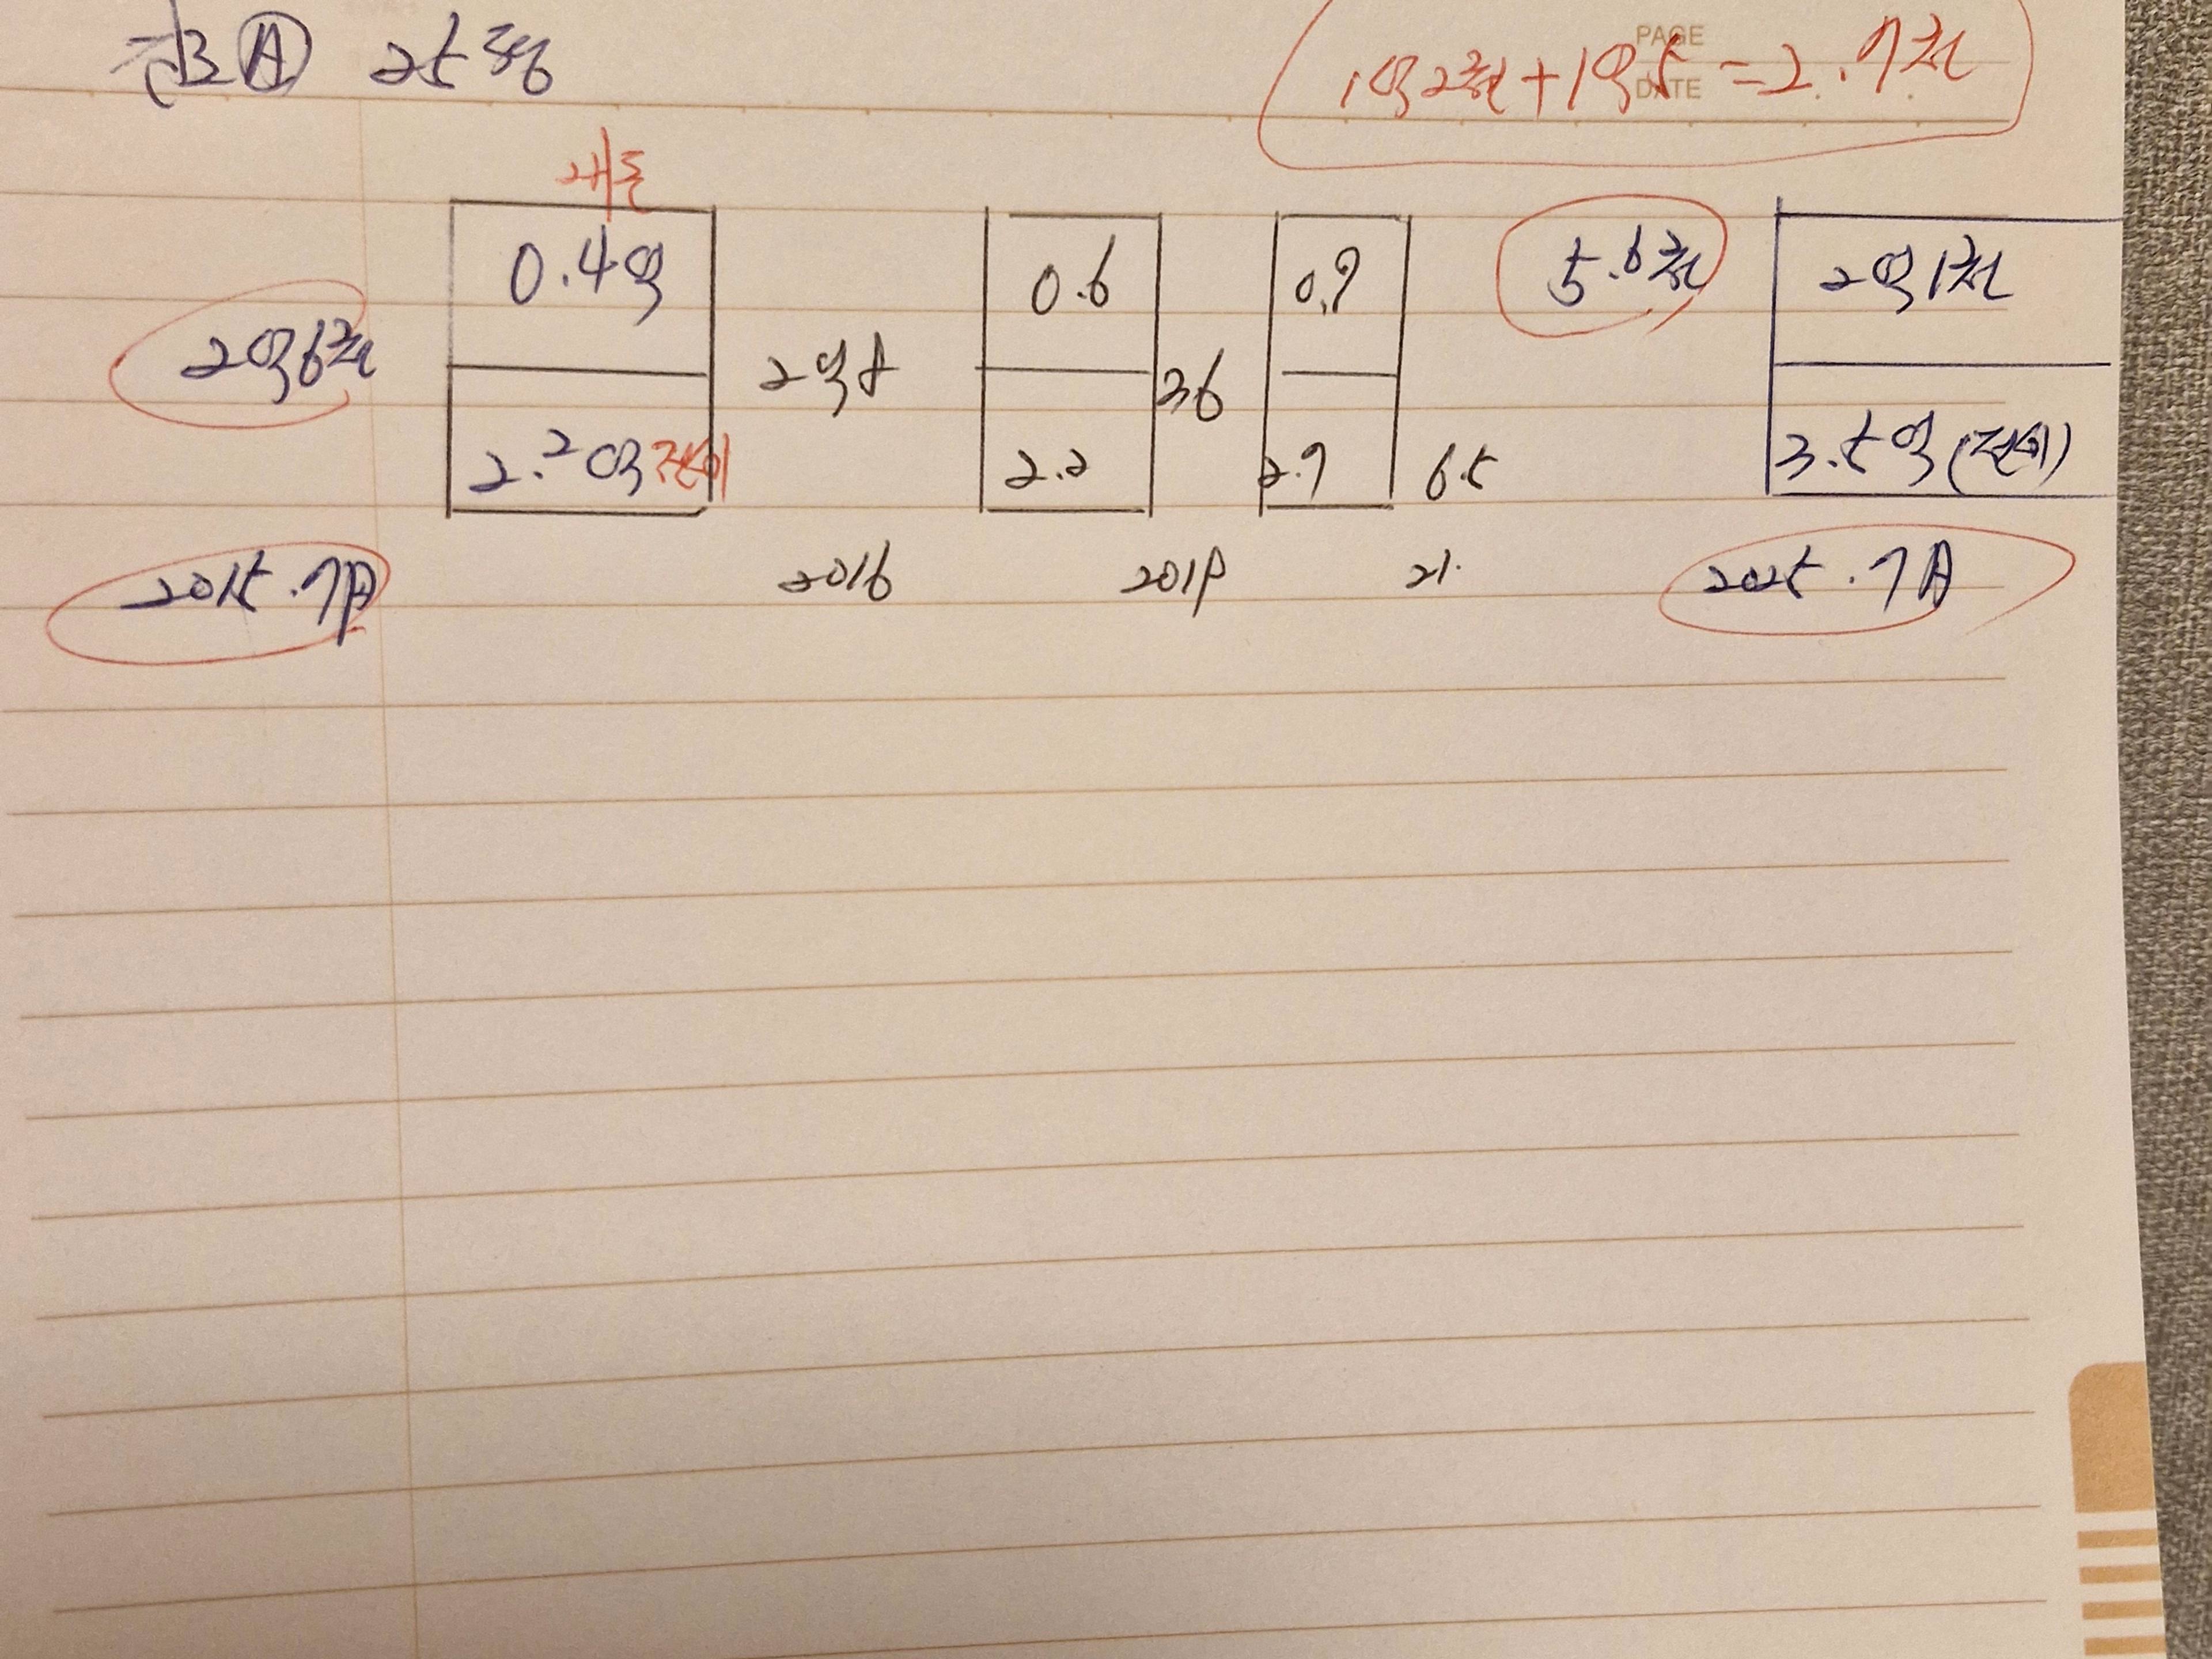 25평
PAGE
DATE
1억2천+1억5=2.7천
0.4억
0.6
0.7
5.6천
2억1천
2억6천
2억8
36
2.2억 전세
2.2
2.9
6.5
3.5억(전세)
2015.7月
2016
2018
21.
2025.7月